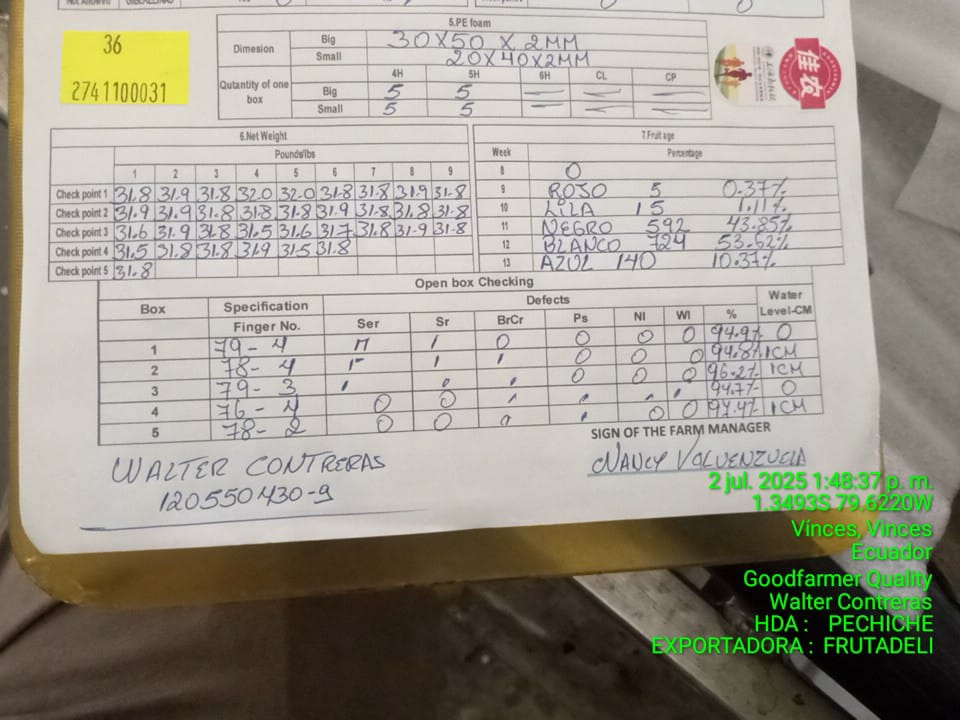 Not Allowed GIBERLLINAS
36
2741100031
5.PE foam
Dimesion Big 30X50 X 2MM
Small 20X40X2MM
Qutantity of one box 4H 5H 6H CL CP
Big 5 5
Small 5 5
佳农
6.Net Weight
Pounds/lbs
1 2 3 4 5 6 7 8 9
Check point 1 31.8 31.9 31.8 32.0 32.0 31.8 31.8 31.9 31.8
Check point 2 31.9 31.9 31.8 31.8 31.8 31.9 31.8 31.8 31.8
Check point 3 31.6 31.9 31.8 31.5 31.6 31.7 31.8 31.9 31.8
Check point 4 31.5 31.8 31.8 31.9 31.5 31.8
Check point 5 31.8
7.Fruit age
Week Percentage
8 0
9 ROJO 5 0.37%
10 LILA 15 1.11%
11 NEGRO 592 43.85%
12 BLANCO 724 53.62%
13 AZUL 140 10.37%
Open box Checking
Box Specification Defects Water
Finger No. Ser Sr BrCr Ps NI WI % Level-CM
1 79-4 0 0 0 0 94.9% 0
2 78-4 0 0 0 94.8% 1CM
3 79-3 0 0 0 96.2% 1CM
4 76-4 0 0 94.7% 0
5 78-2 0 0 0 0 97.4% 1CM
SIGN OF THE FARM MANAGER
WALTER CONTRERAS
120550430-9
NANCY VALUENZUELA
2 jul. 2025 1:48:37 p. m.
1.3493S 79.6220W
Vínces, Vinces
Ecuador
Goodfarmer Quality
Walter Contreras
HDA : PECHICHE
EXPORTADORA : FRUTADELI